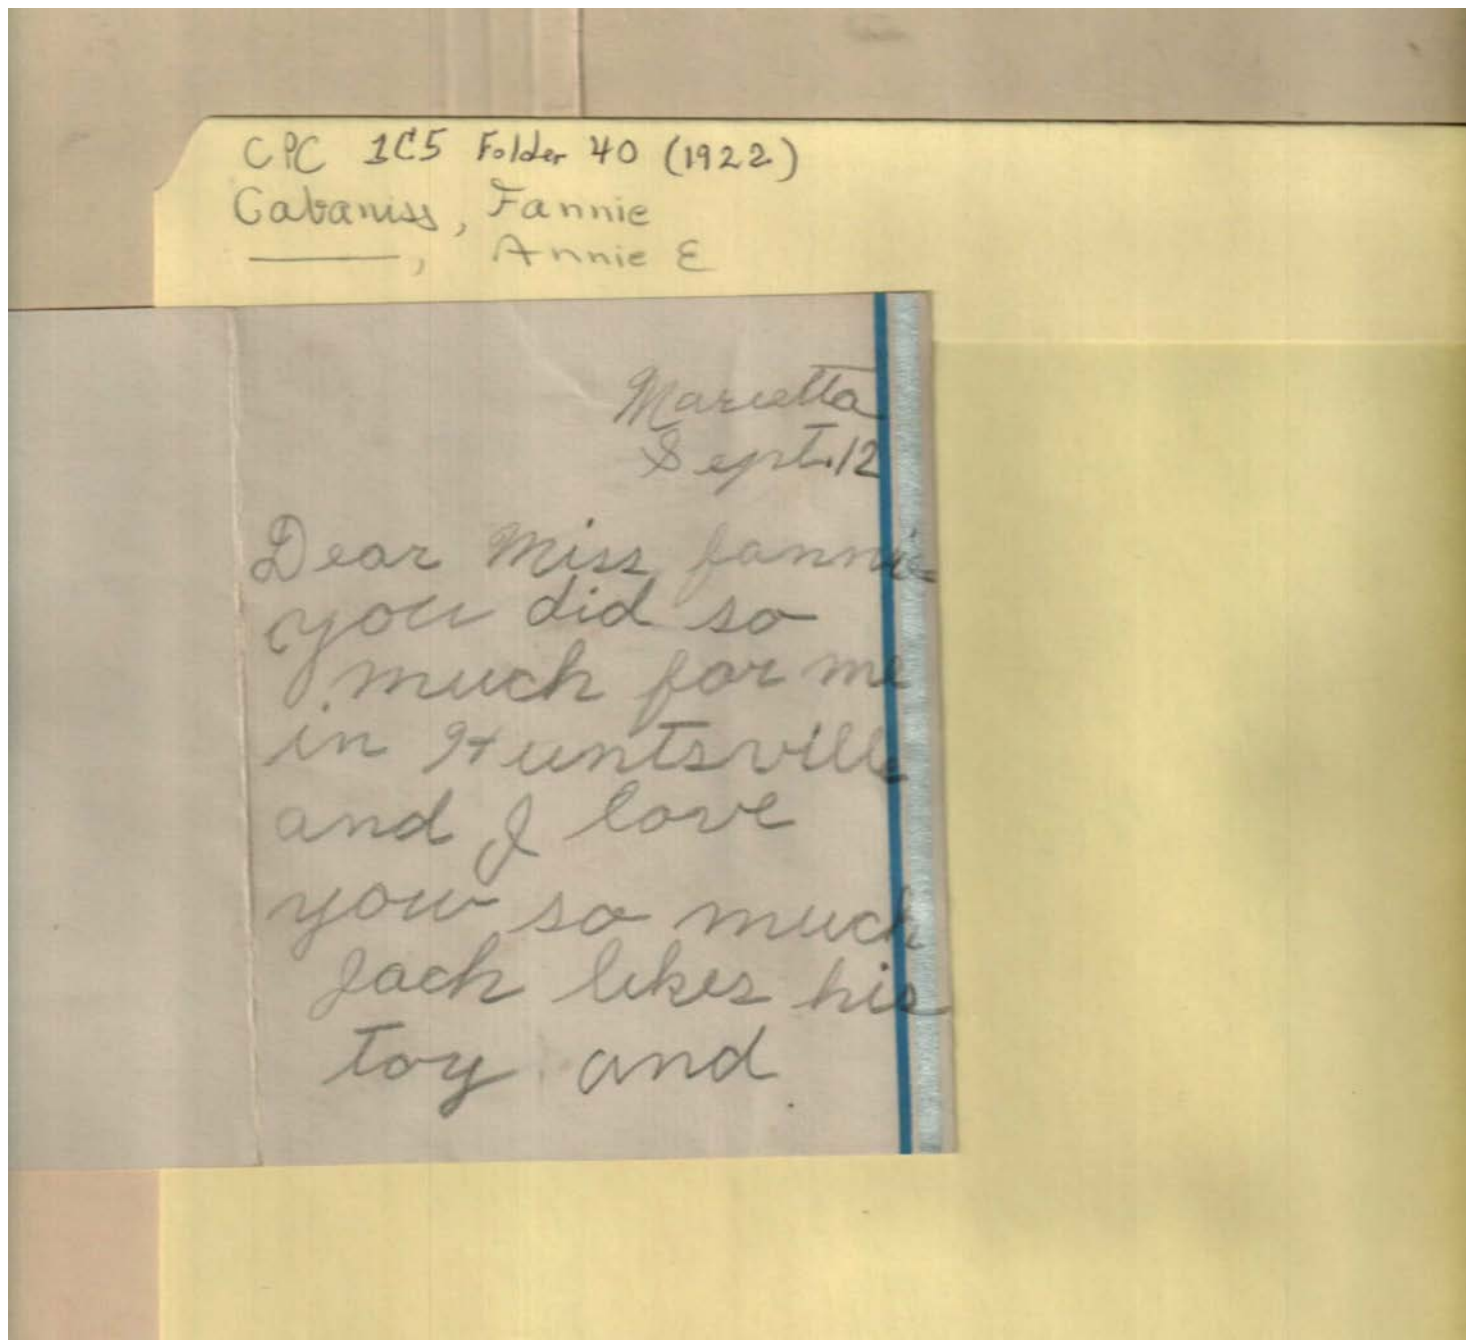 CPC 1C5 Folder 40 (1922)
Cabaniss, Fannie
———, Annie E
Marietta
Sept. 12
Dear Miss fannie
you did so
much for me
in Huntsville
and I love
you so much
Jack likes his
toy and